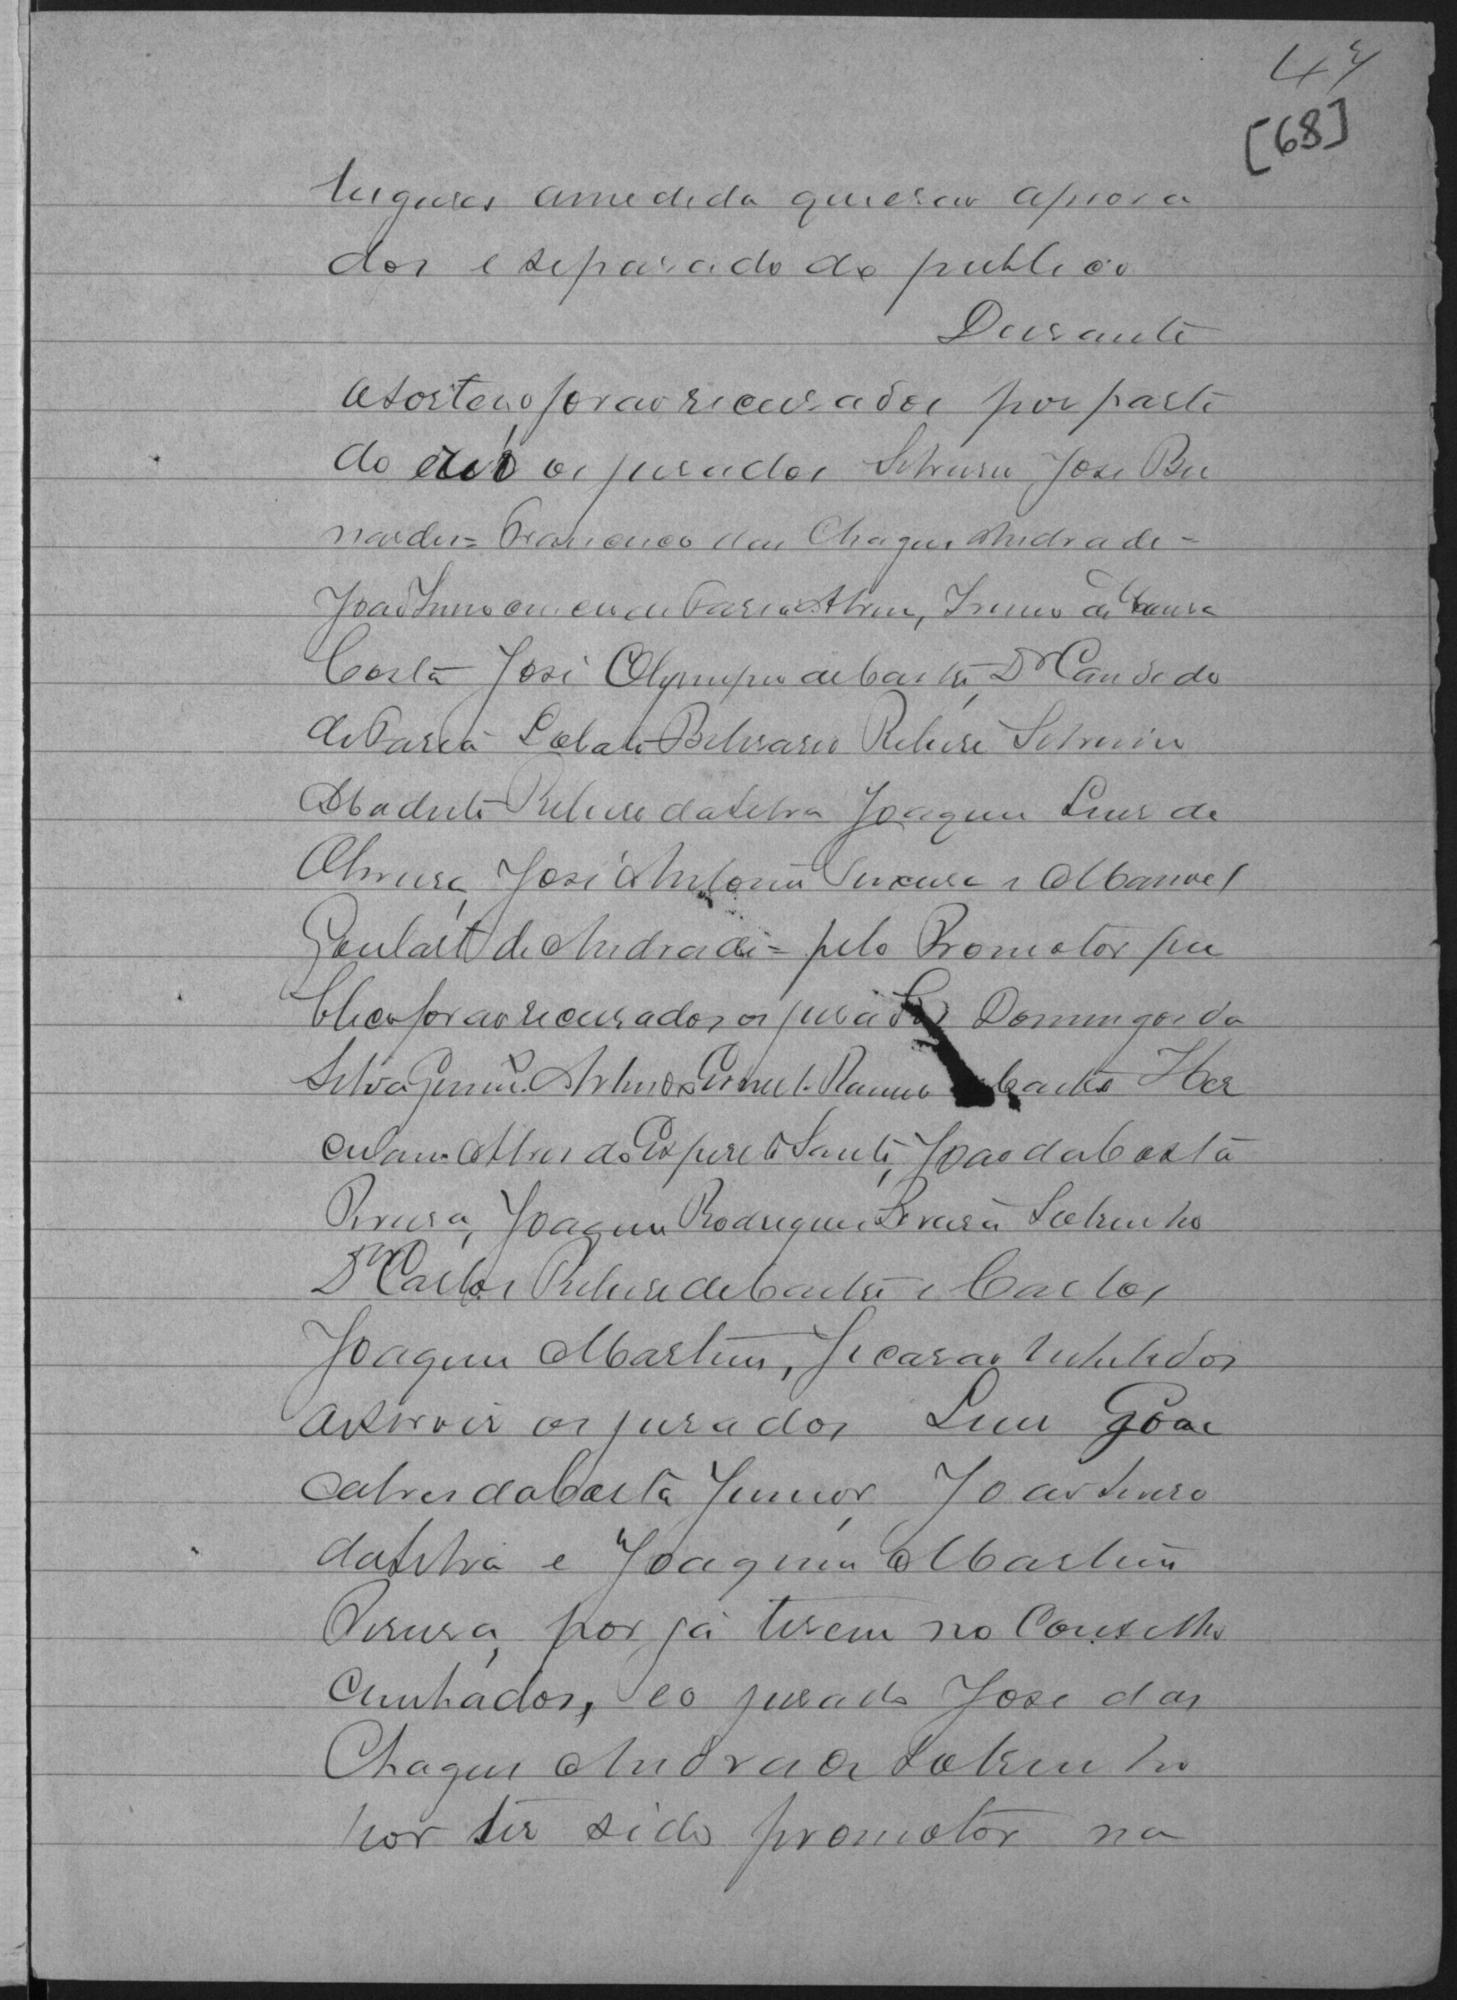 47
[68]
lugares amedida que erão aprova
dos e separado do publico
Durante
o sorteio forão recusados por parte
do réo os jurados Silverio José Ber
nardes = Francisco das Chagas Andrade =
João de Faria Alvim, Irineu de Souza
Costa José Olympio de Castro, Dr Candido
de Faria Lobato Belisario Ribeiro
Ribeiro da Silva Joaquim Luis de
Oliveira, José Antonio Teixeira e Manoel
Goulart de Andrade = pelo Promotor pu
blico forão recusados os jurados Domingos da
Silva Ramos Castro Her
culano Alves do Espirito Santo, João da Costa
Pereira, Joaquim Rodrigues Pereira Sobrinho
Dr Carlos Ribeiro de Castro e Carlos
Joaquim Martins, ficarão inhibidos
de servir os jurados Luis Gon
calves da Costa Junior, João
da Silva e Joaquim Martins
Pereira, por já terem no Conselho
cunhados, e o jurado José das
Chagas Andrade Sobrinho
por ter sido promotor na